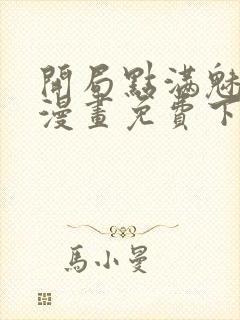 開局點滿魅
漫畫免費下
馬小曼